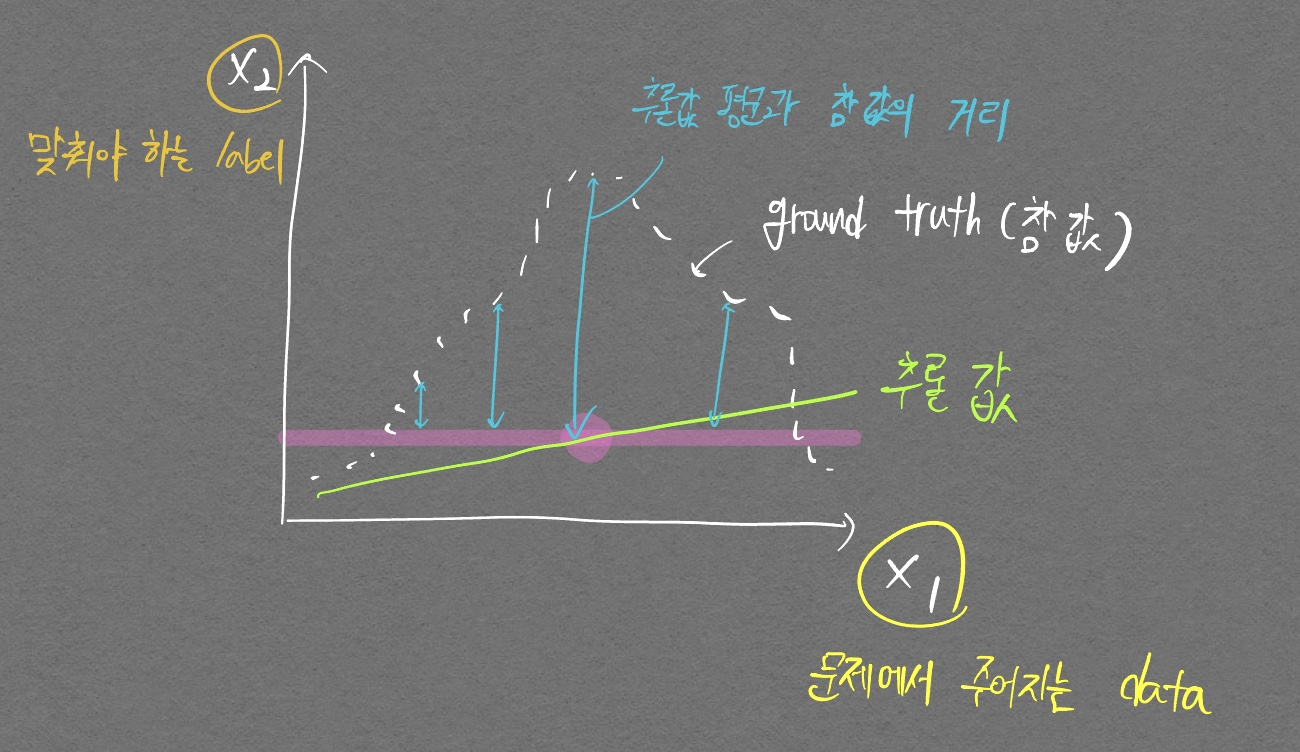 x₂
맞춰야 하는 label
추론값 평균과 참값의 거리
ground truth (참 값)
추론 값
x₁
문제에서 주어지는 data